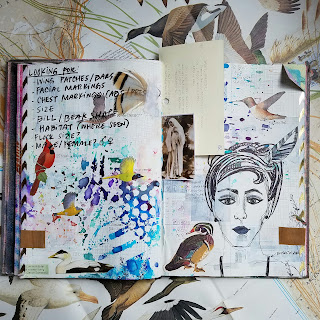 LOOKING FOR:
- WING PATCHES/BARS
- FACIAL MARKINGS
- CHEST MARKINGS
- SIZE
- BILL/BEAK SHAPE
- HABITAT (WHERE SEEN)
FLOCK SIZE?
- MALE/FEMALE?